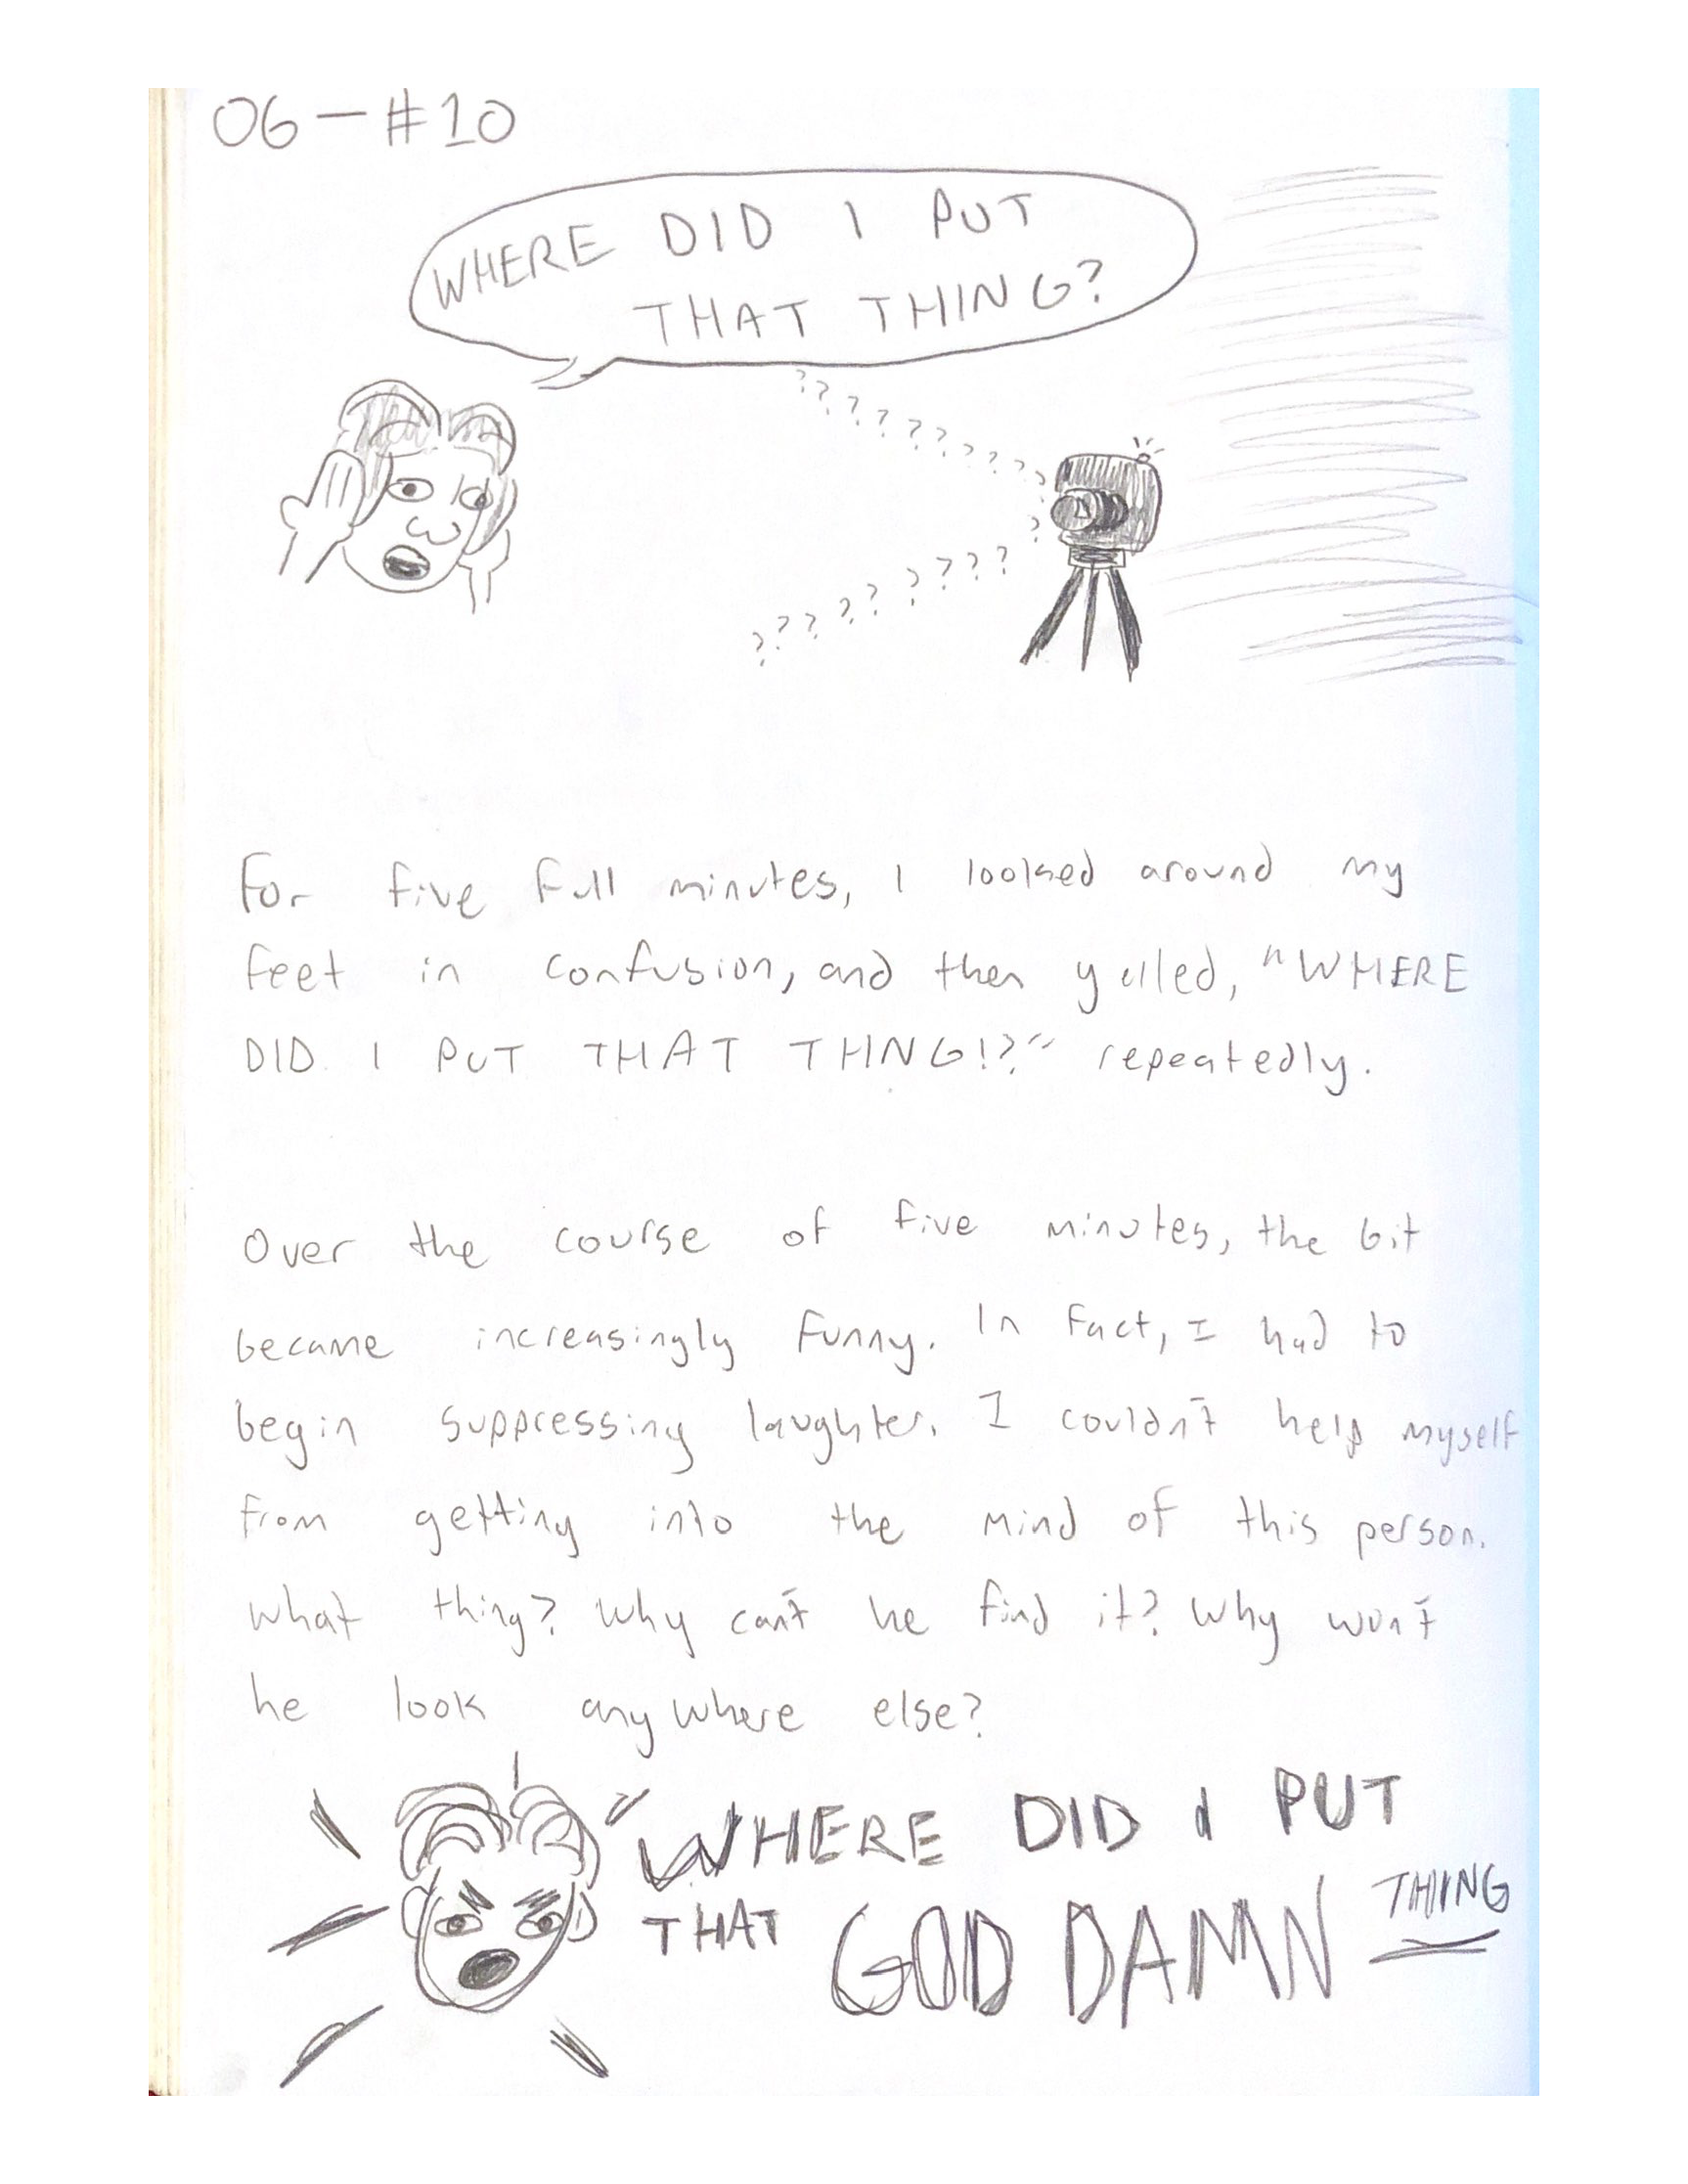 06 — #10
WHERE DID I PUT
THAT THING?
? ? ? ? ? ? ? ? ? ? ? ?
? ? ? ? ? ? ? ? ? ? ?
For five full minutes, I looked around my
feet in confusion, and then yelled, "WHERE
DID I PUT THAT THNG!?" repeatedly.
Over the course of five minutes, the bit
became increasingly funny. In fact, I had to
begin suppressing laughter. I couldn't help myself
from getting into the mind of this person.
What thing? Why can't he find it? Why won't
he look anywhere else?
"WHERE DID I PUT
THAT GOD DAMN THING